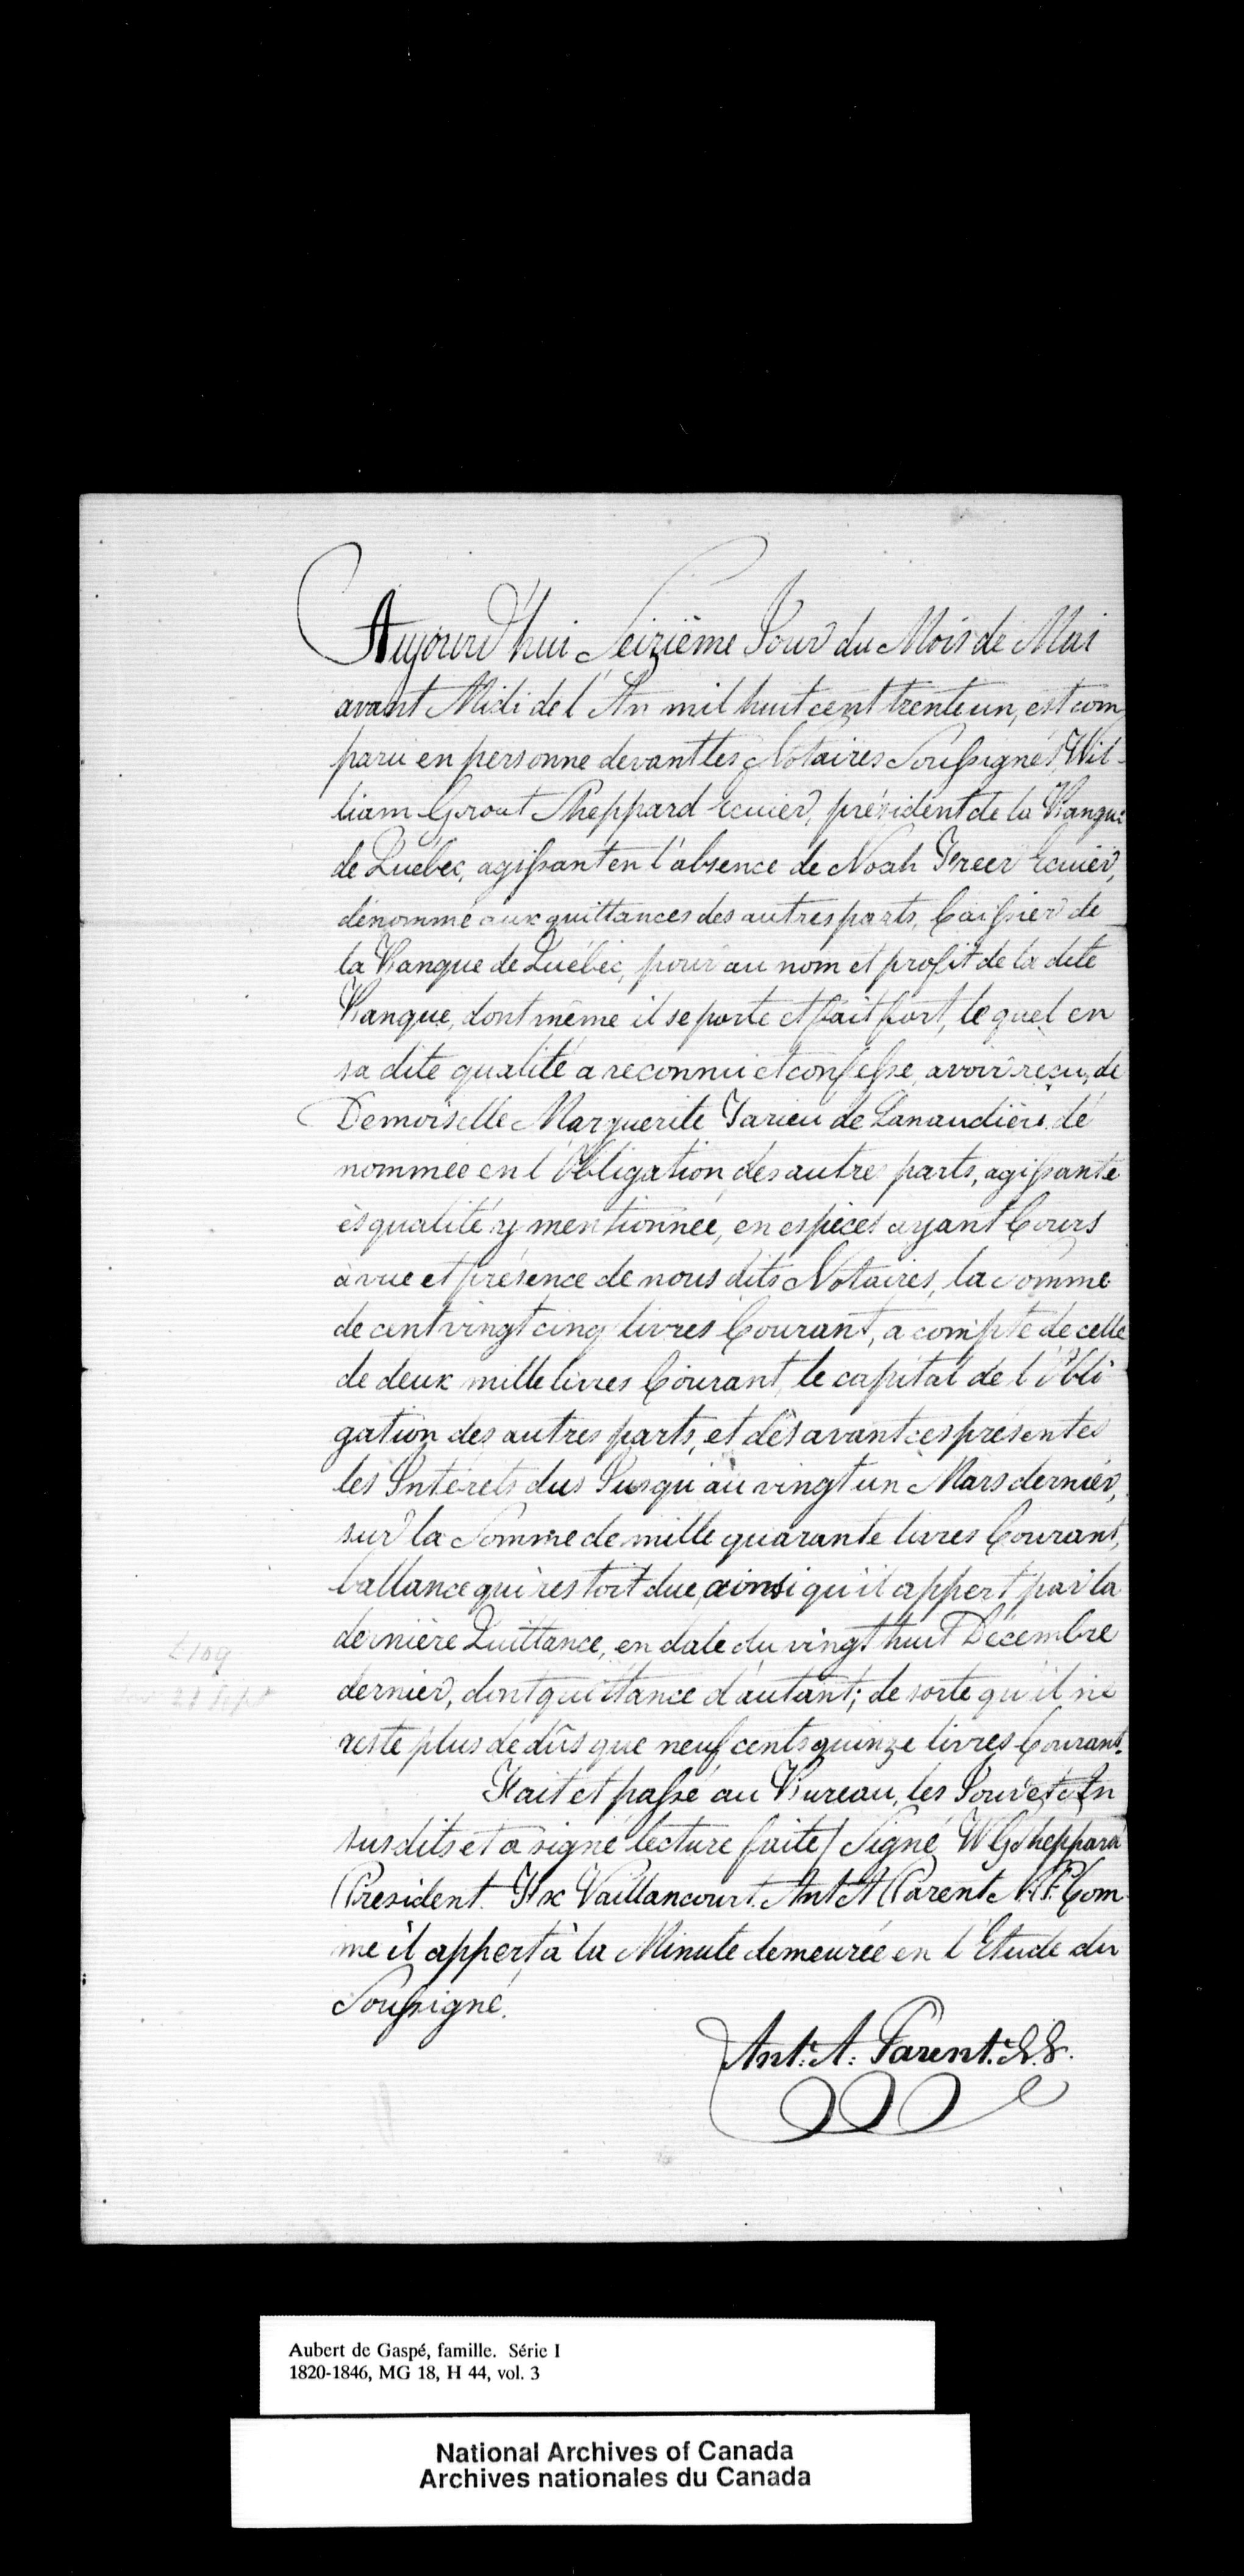 Aujourd'hui Seizième Jour du Mois de Mai
avant Midi de l'An mil huit cent trente un, est com
paru en personne devant les Notaires Soussignés, Wil-
liam Grout Sheppard Ecuier, président de la Banque
de Québec, agissant en l'absence de Noah Freer Ecuier,
dénommé aux quittances des autres parts, Caissier de
la Banque de Québec, pour au nom et profit de la dite
Banque, dont même il se porte et fait fort, lequel en
sa dite qualité a reconnu et confessé avoir reçu, de
Demoiselle Marguerite Tarieu de Lanaudière dé
nommée en l'Obligation des autres parts, agissante
ès qualité y mentionnée, en espèces ayant Cours
à vue et présence de nous dits Notaires, la Somme
de cent vingt cinq livres Courant, à compte de celle
de deux mille livres Courant, le capital de l'Obli
gation des autres parts, et dès avant ces présentes
les Intérets dus Jusqu'au vingt un Mars dernier,
sur la Somme de mille quarante livres Courant,
ballance qui restoit due, ainsi qu'il appert par la
dernière Quittance, en date du vingt huit Décembre
dernier, dont quittance d'autant; de sorte qu'il ne
reste plus de dûs que neuf cents quinze livres Courant.
Fait et passé au Bureau, les Jour et An
susdits et a signé lecture faite / Signé W G Sheppard
President. Fx Vaillancourt. Ant A Parent N.P. Com
me il appert à la Minute demeurée en l'Etude du
Soussigné.
Ant: A: Parent. N.P.
£109
28 Sept
Aubert de Gaspé, famille. Série I
1820-1846, MG 18, H 44, vol. 3
National Archives of Canada
Archives nationales du Canada